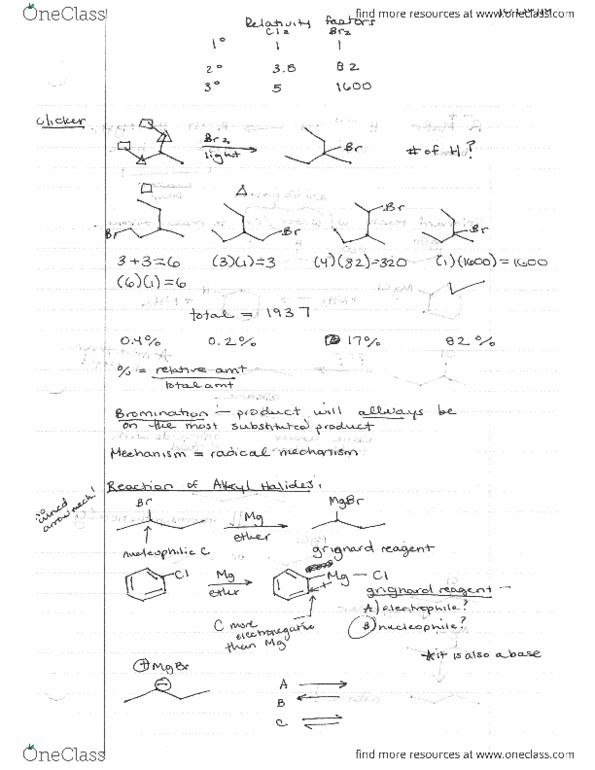 OneClass
find more resources at www.oneclass.com
Relativity factors
Cl2 Br2
1° 1 1
2° 3.8 82
3° 5 1600
Clicker
Br2
light
Br
# of H?
Br
Br
Br
Br
3+3=6 (3)(1)=3 (4)(82)=320 (1)(1600)=1600
(6)(1)=6
total = 1937
0.4% 0.2% 17% 82%
% = relative amt
total amt
Bromination - product will allways be
on the most substituted product
Mechanism = radical mechanism
Reaction of Alkyl Halides:
no
curved
arrow mech!
Br
Mg
ether
MgBr
nucleophilic C
grignard reagent
Cl
Mg
ether
Mg - Cl
grignard reagent -
A) electrophile?
B) nucleophile?
C more
electronegative
than Mg
*it is also a base
+ MgBr
-
A
B
C
OneClass
find more resources at www.oneclass.com